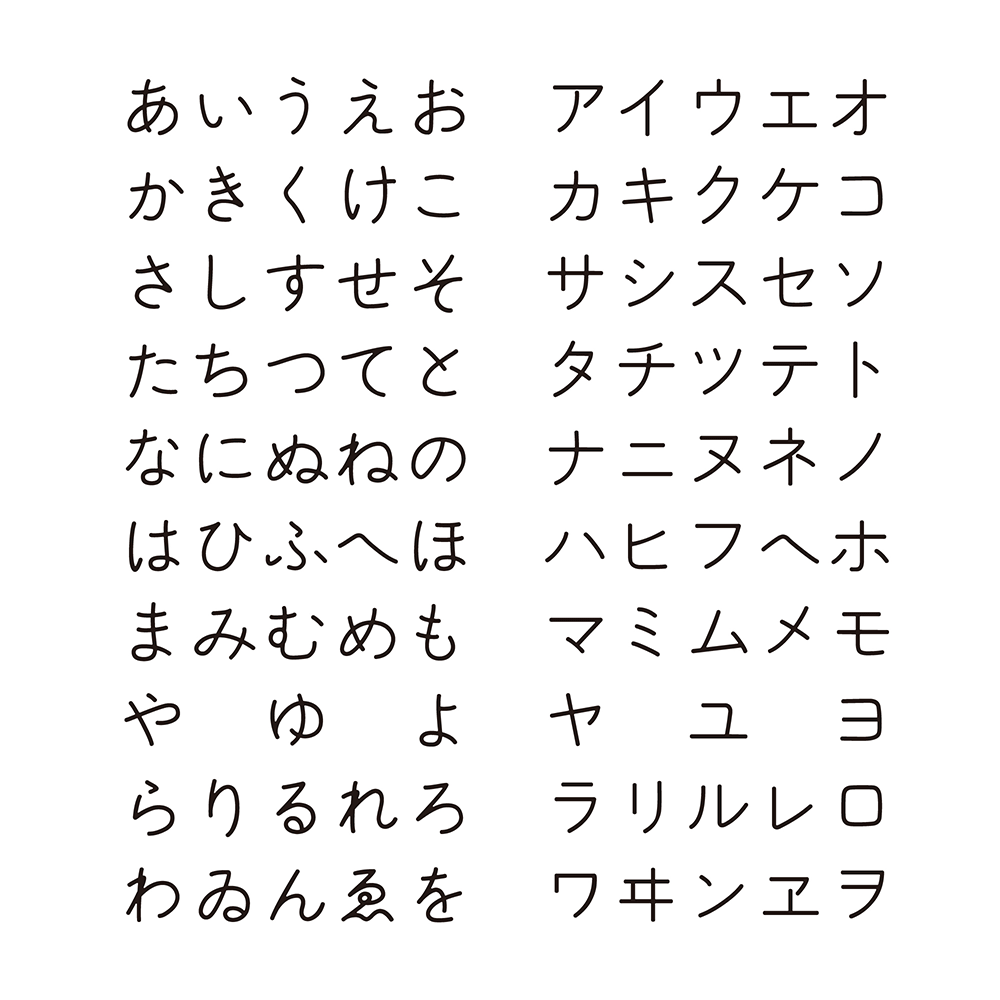 あいうえお アイウエオ
かきくけこ カキクケコ
さしすせそ サシスセソ
たちつてと タチツテト
なにぬねの ナニヌネノ
はひふへほ ハヒフヘホ
まみむめも マミムメモ
や ゆ よ ヤ ユ ヨ
らりるれろ ラリルレロ
わゐんゑを ワヰンヱヲ